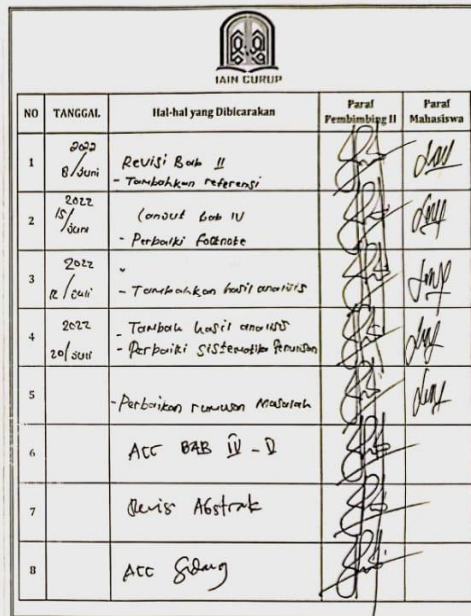 IAIN CURUP
NO TANGGAL Hal-hal yang Dibicarakan Paraf Pembimbing II Paraf Mahasiswa
1 2022 8/Juni Revisi Bab II
- Tambahkan referensi
2 2022 15/Juni Lanjut bab IV
- Perbaiki footnote
3 2022 12/Juli "
- Tambahkan hasil analisis
4 2022 20/Juli - Tambah hasil analisis
- Perbaiki sistematika Penulisan
5 - Perbaikan rumusan Masalah
6 ACC BAB IV - V
7 Revisi Abstrak
8 ACC Sidang